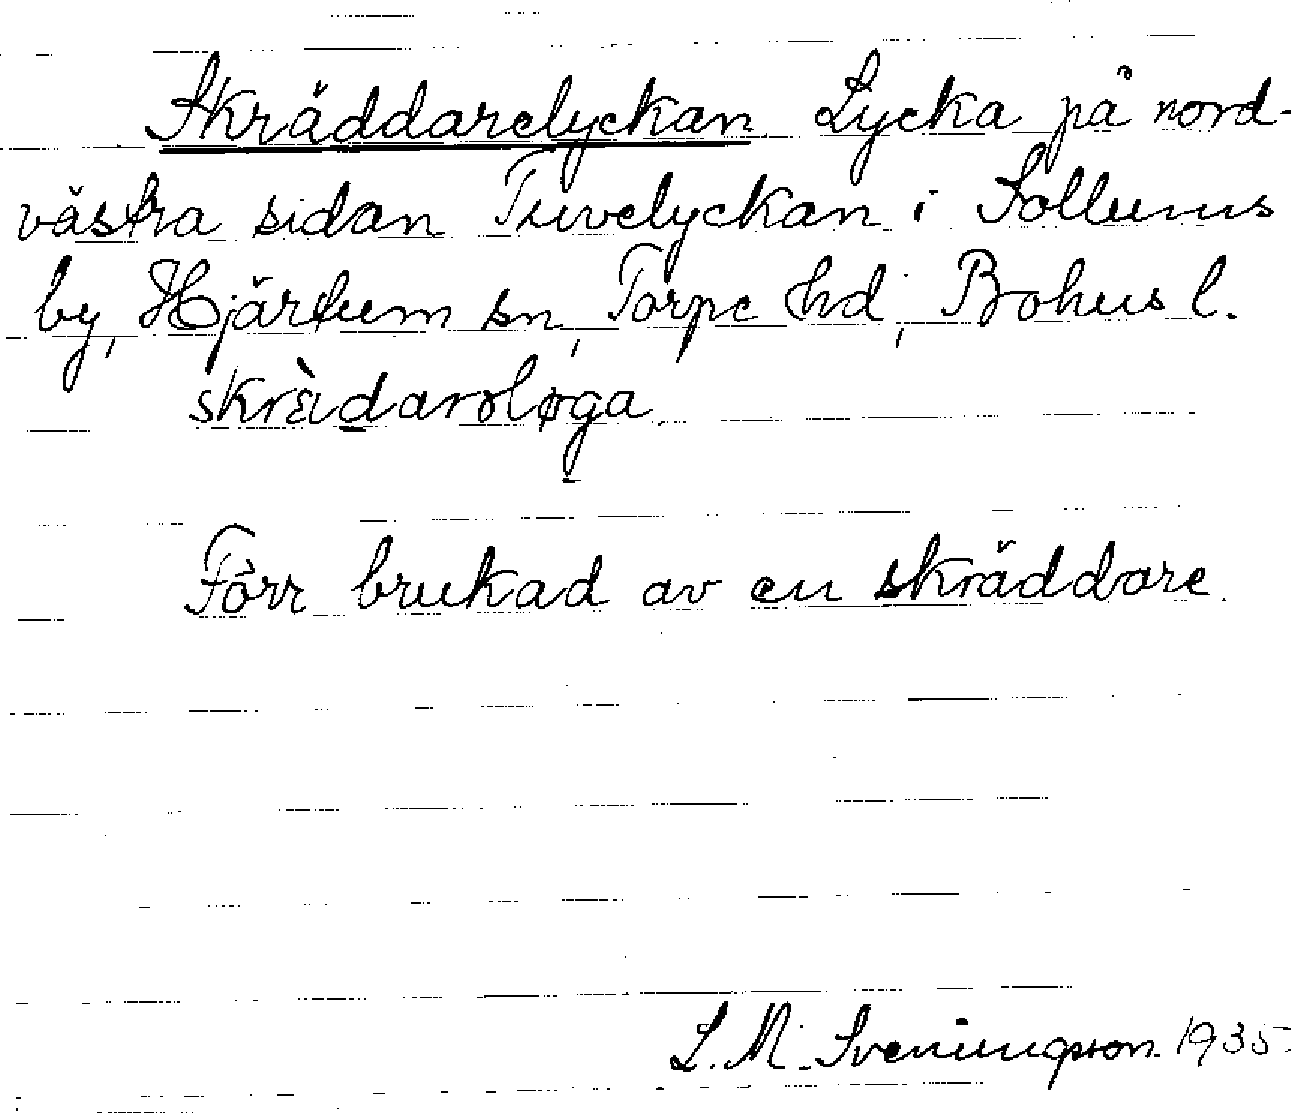 Skräddarelyckan Lycka på nord-
västra sidan Tuvelyckan i Sollums
by, Hjärtum sn, Torpe hd, Bohus l.
skrädaroløga
Förr brukad av en skräddare.
L. M. Sveningsson 1935